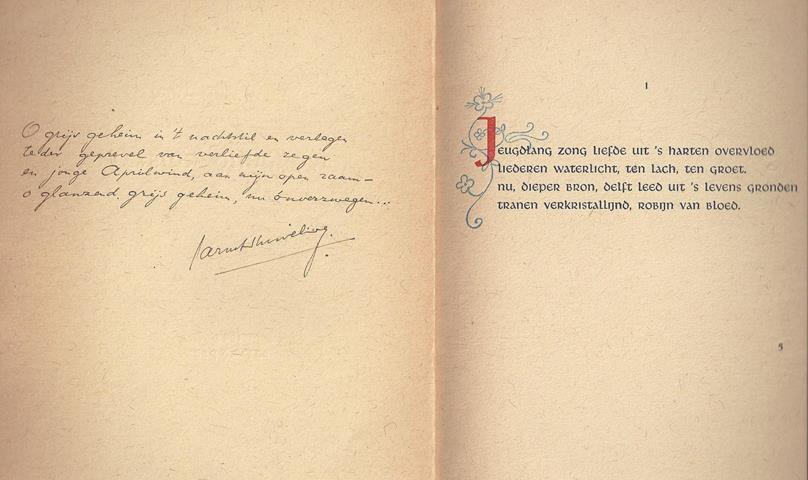 O grijs geheim in 't nachtstil en verlegen
teder geprevel van verliefde regen
en jonge Aprilwind, aan mijn open raam –
o glanzend grijs geheim, nu onverzwegen...
I
Jeugdlang zong liefde uit 's harten overvloed
liederen waterlicht, ten lach, ten groet.
nu, dieper bron, delft leed uit 's levens gronden
tranen verkristallijnd, robijn van bloed.
5